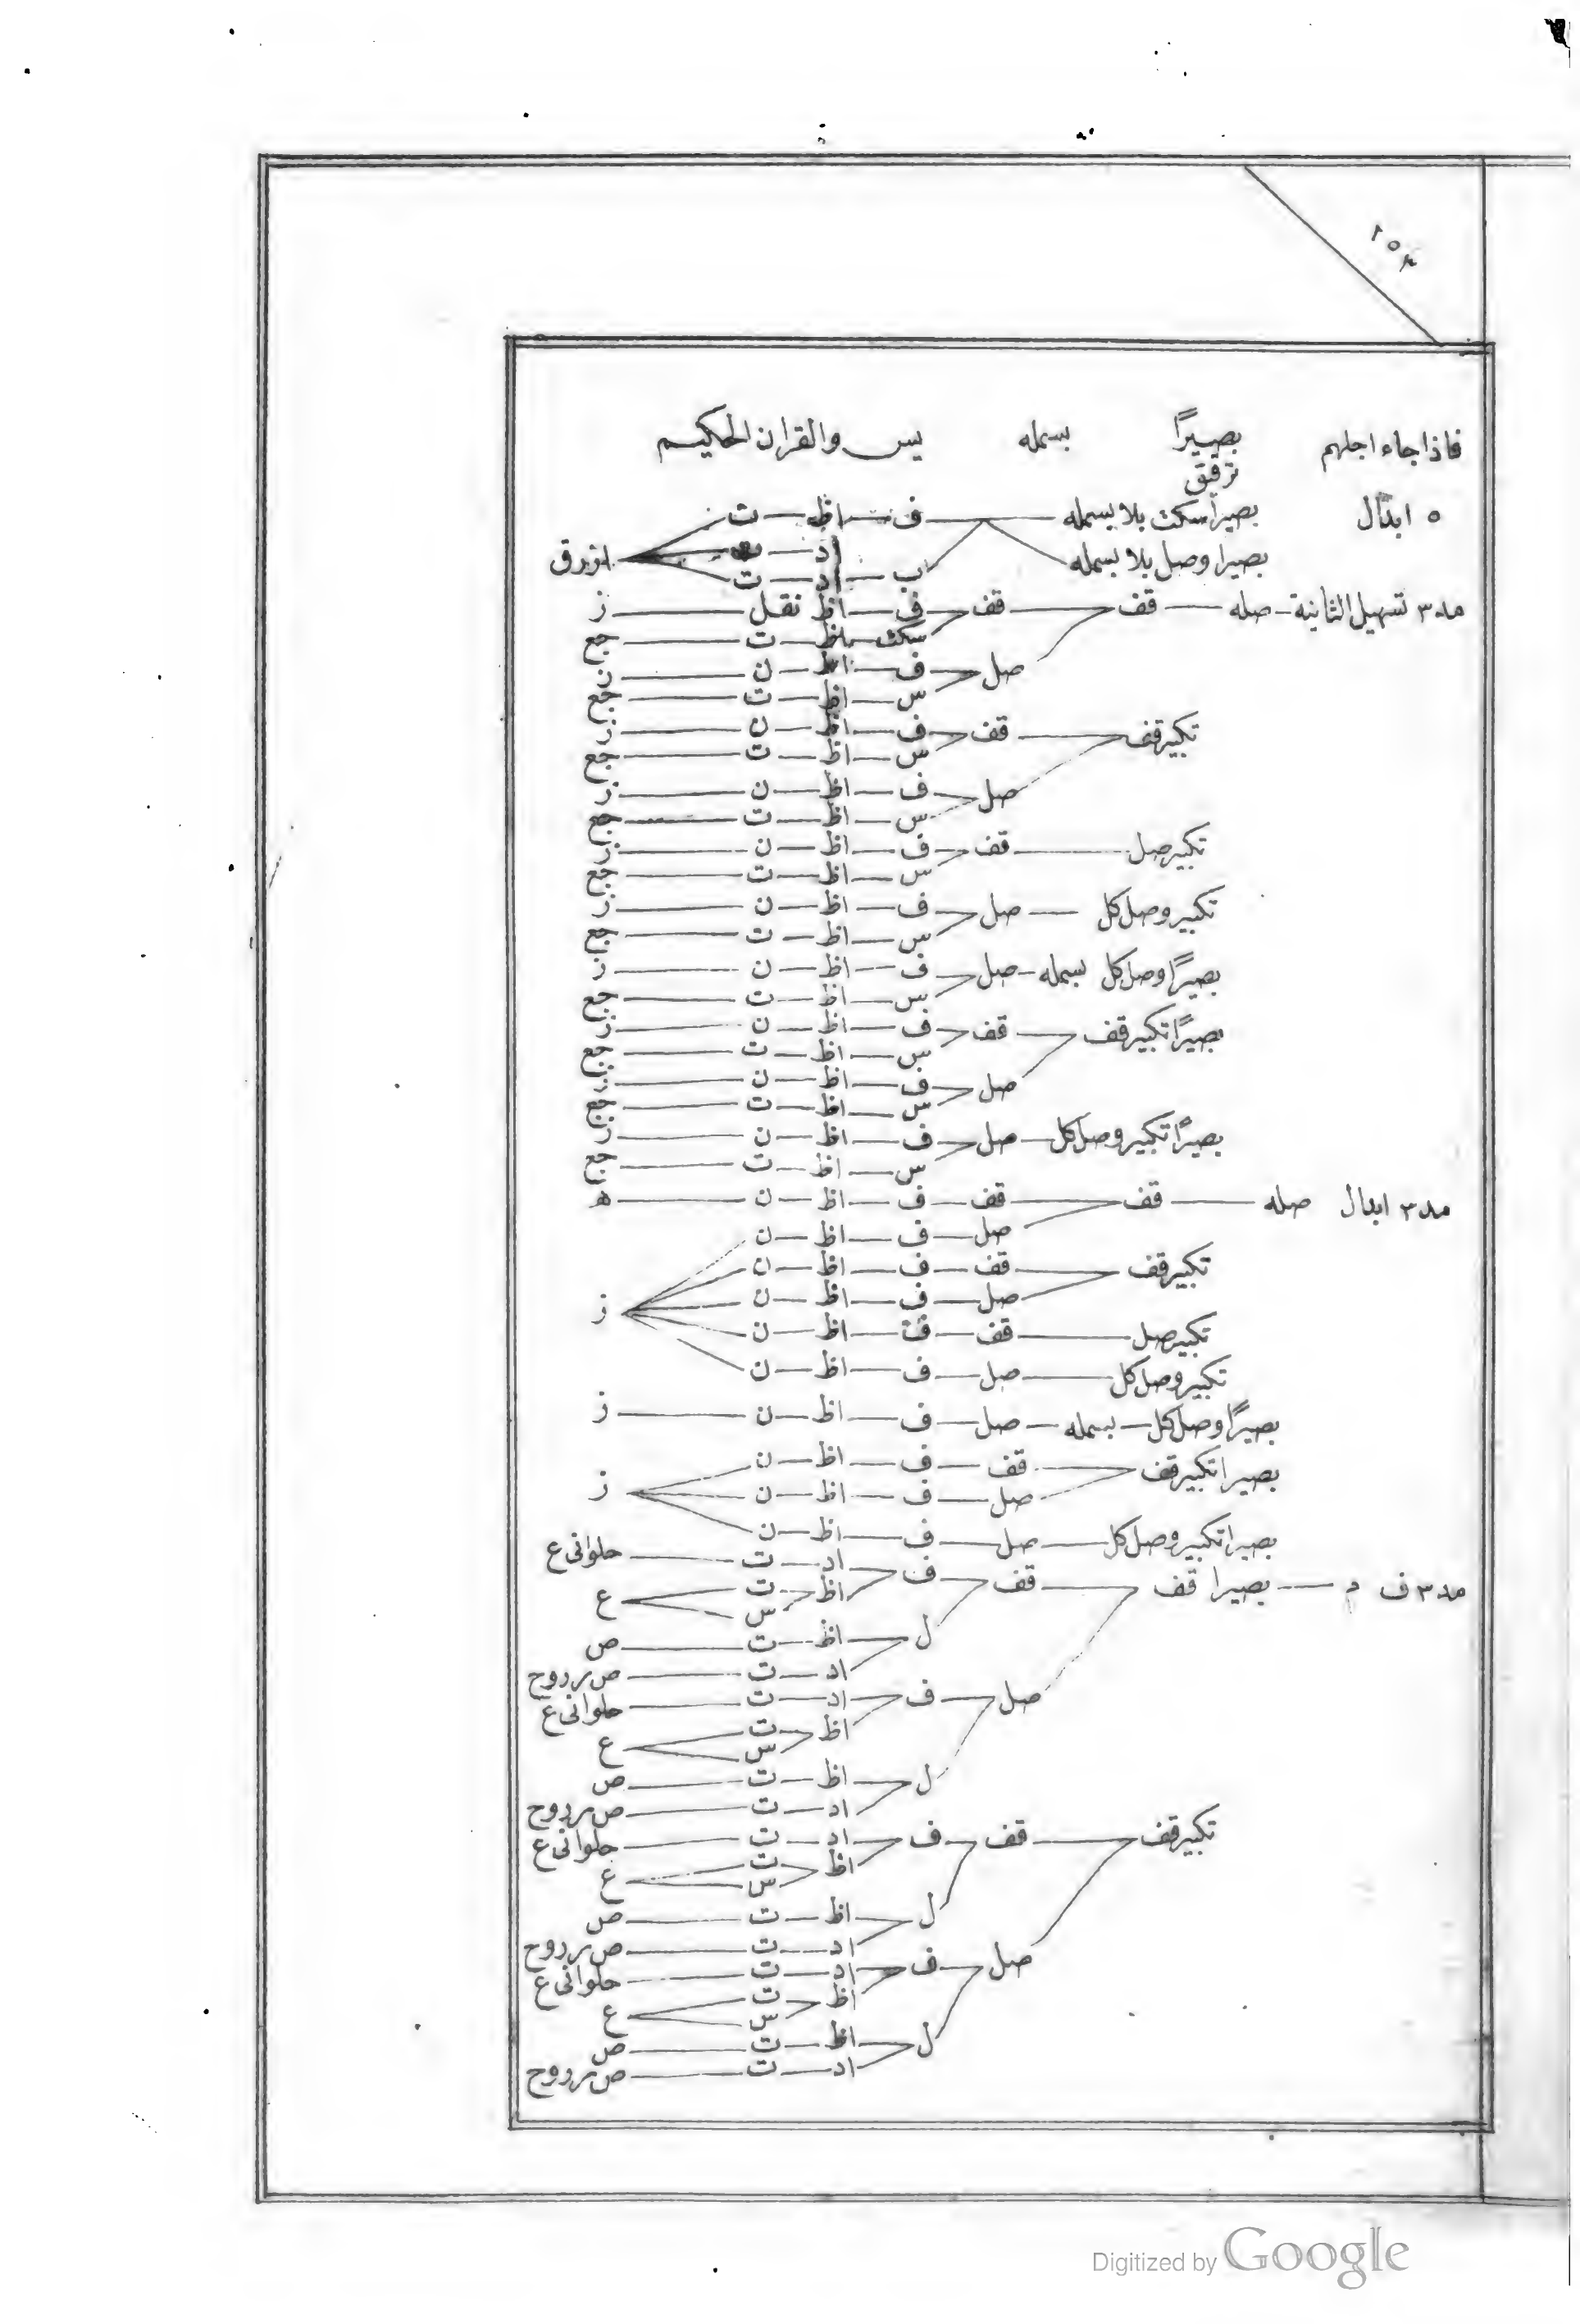 ٢٥٤
فاذا جاء اجلهم بصيرًا بسمله يس والقران الحكيم
ترقق
٥ ابدال بصيرا سكت بلا بسمله ف اظ ت
اد ازرق
بصيرا وصل بلا بسمله ب اد ت
مد٣ تسهيل الثانية صله قف قف ف اظ نقل ز
سكت اظ ت جع
صل ف اظ ن ز
س اظ ت جع
تكبير قف قف ف اظ ن ز
س اظ ت جع
صل ف اظ ن ز
س اظ ت جع
تكبير صل قف ف اظ ن ز
س اظ ت جع
تكبير وصل كل صل ف اظ ن ز
س اظ ت جع
بصيرًا وصل كل بسمله صل ف اظ ن ز
س اظ ت جع
بصيرًا تكبير قف قف ف اظ ن ز
س اظ ت جع
صل ف اظ ن ز
س اظ ت جع
بصيرًا تكبير وصل كل صل ف اظ ن ز
س اظ ت جع
مد٣ ابدال صله قف قف ف اظ ن ه
صل ف اظ ن
تكبير قف قف ف اظ ن
صل ف اظ ن ز
تكبير صل قف ف اظ ن
تكبير وصل كل صل ف اظ ن
بصيرًا وصل كل بسمله صل ف اظ ن ز
بصيرا تكبير قف قف ف اظ ن
صل ف اظ ن ز
بصيرا تكبير وصل كل صل ف اظ ن
مد٣ ف م بصيرا قف قف ف اد ت حلوانى ع
اظ ت س ع
ل اظ ت ص
اد ت ص م ر د و ح
صل ف اد ت حلوانى ع
اظ ت س ع
ل اظ ت ص
اد ت ص م ر د و ح
تكبير قف قف ف اد ت حلوانى ع
اظ ت س ع
ل اظ ت ص
اد ت ص م ر د و ح
صل ف اد ت حلوانى ع
اظ ت س ع
ل اظ ت ص
اد ت ص م ر د و ح
Digitized by Google